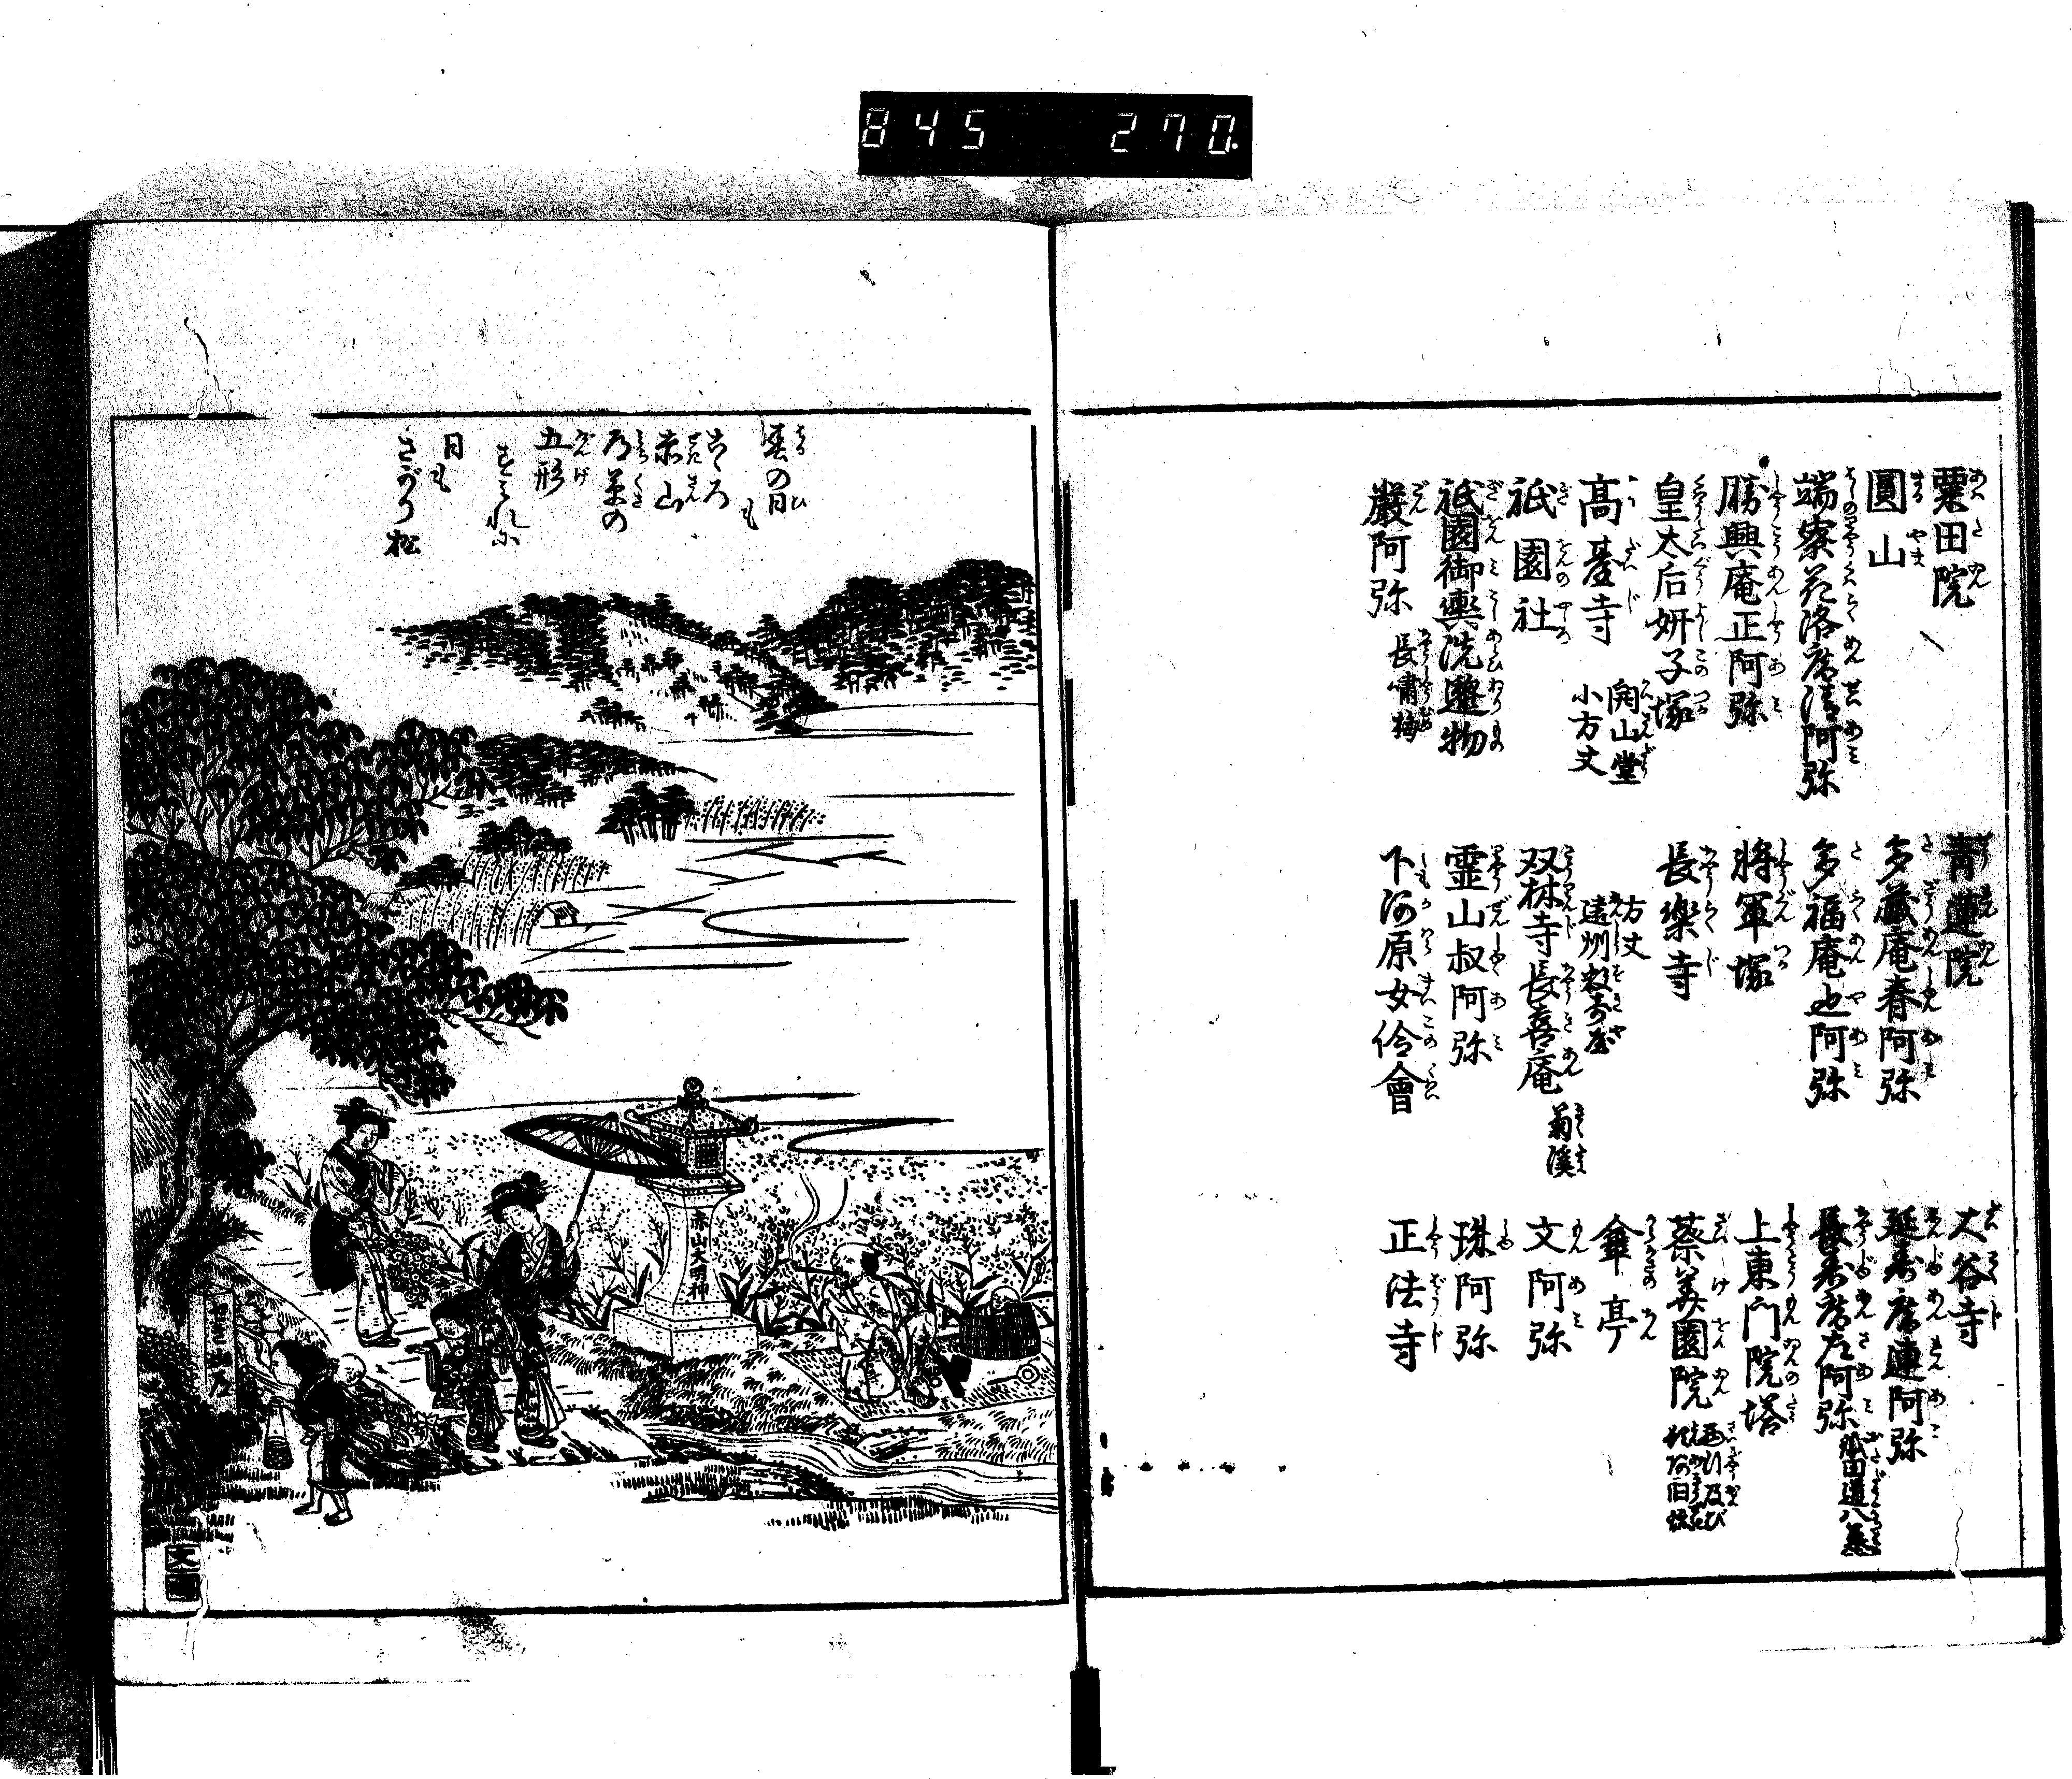 845 270
粟田院
圓山
端寮花洛庵清阿弥
勝興庵正阿弥
皇太后妍子塚
高臺寺
開山堂
小方丈
祇園社
祇園御輿洗邌物
巌阿弥 長嘯梅
青蓮院
多蔵庵春阿弥
多福庵也阿弥
將軍塚
長樂寺
方丈
遠州数寄屋
双林寺長喜庵 菊渓
霊山叔阿弥
下河原女伶會
大谷寺
延寿庵連阿弥
長寿庵左阿弥 祇田道八墓
上東門院塔
蔡華園院
西行及び
傘亭
文阿弥
珠阿弥
正法寺
春の日
も
赤山
五形
すみれに
目も
さがり松
赤山大明神